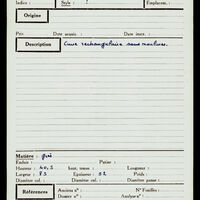 Indice : Style : ? Emplacem. :
Origine
Prix Date acquis. : Date inscr. :
Description Cuve rectangulaire sans moulures.
Matière : grès
Enduit : Patine :
Hauteur : 40,5 haut. totale : Longueur :
Largeur : 83 Epaisseur : 52 Poids :
Diamètre col. : Diamètre col. : Diamètre panse :
Références Anciens n° : N° Fouilles :
Dossier n° : Analyse n° :